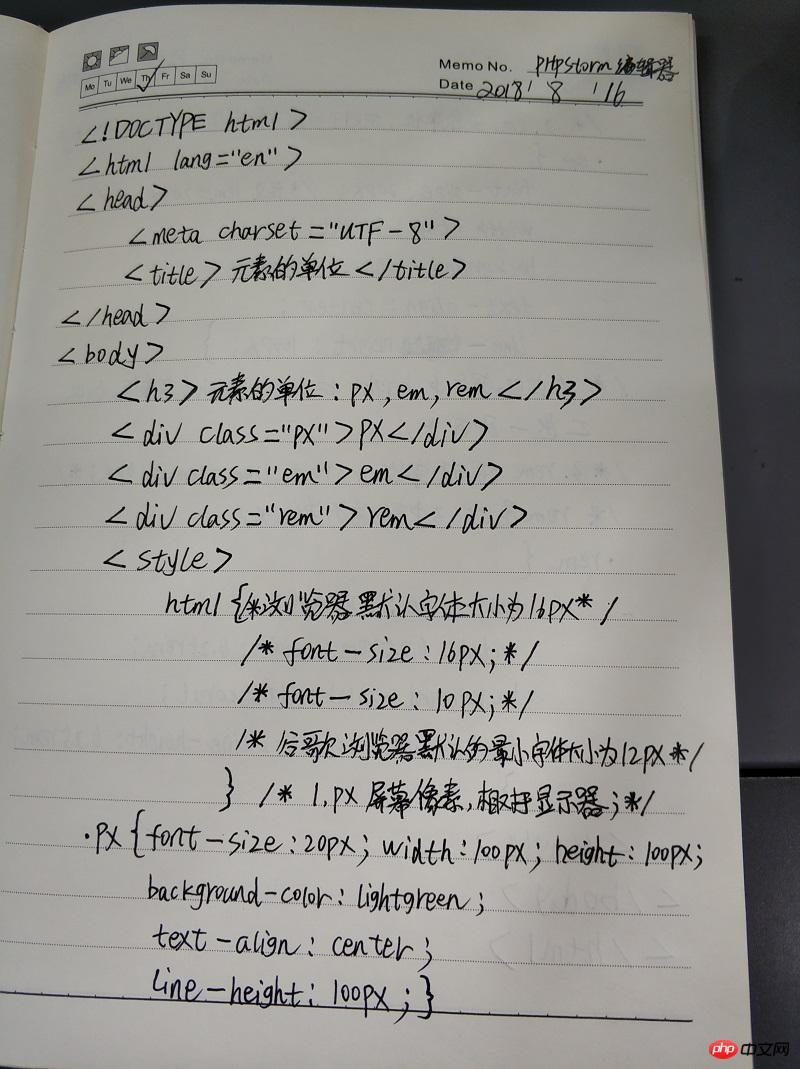 Memo No. PHPStorm 编辑器
Mo Tu We Th Fr Sa Su
Date 2018' 8 '16
<!DOCTYPE html>
<html lang="en">
<head>
<meta charset="UTF-8">
<title>元素的单位</title>
</head>
<body>
<h3>元素的单位:px,em,rem</h3>
<div class="px">px</div>
<div class="em">em</div>
<div class="rem">rem</div>
<style>
html{/*浏览器默认字体大小为16px*/
/*font-size:16px;*/
/*font-size:10px;*/
/*谷歌浏览器默认的最小字体大小为12px*/
} /*1.px屏幕像素,相对于显示器;*/
.px{font-size:20px; width:100px; height:100px;
background-color:lightgreen;
text-align:center;
line-height:100px;}
php 中文网